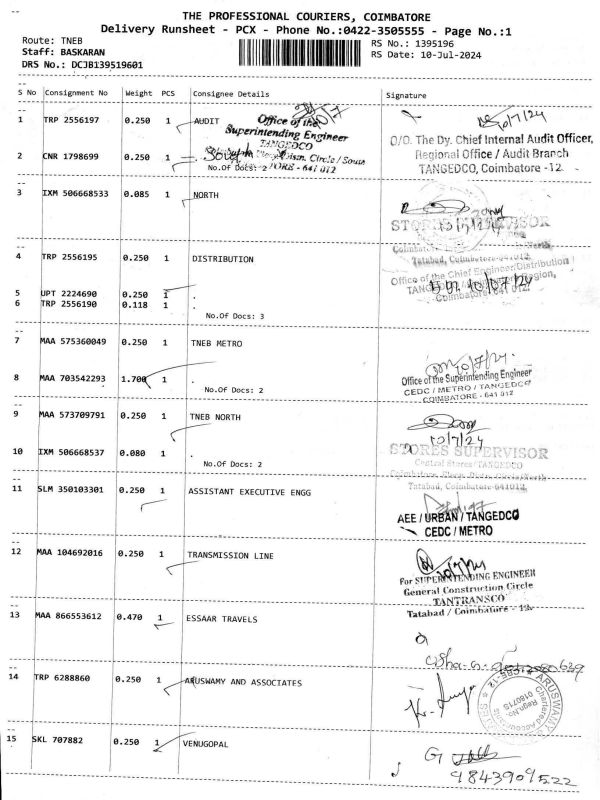 THE PROFESSIONAL COURIERS, COIMBATORE
Delivery Runsheet - PCX - Phone No.:0422-3505555 - Page No.:1
Route: TNEB
RS No.: 1395196
Staff: BASKARAN
RS Date: 10-Jul-2024
DRS No.: DCJB139519601
S No Consignment No Weight PCS Consignee Details Signature
1 TRP 2556197 0.250 1 AUDIT
Office of the
Superintending Engineer
TANGEDCO
10/7/24
O/O. The Dy. Chief Internal Audit Officer,
Regional Office / Audit Branch
TANGEDCO, Coimbatore -12.
2 CNR 1798699 0.250 1
Circle / South
No.Of Docs: 2
641 012
3 IXM 506668533 0.085 1 NORTH
4 TRP 2556195 0.250 1 DISTRIBUTION
Tatabad, Coimbatore-641012.
Office of the Chief Engineer/Distribution
10/07/24
5 UPT 2224690 0.250 1 .
6 TRP 2556190 0.118 1 .
No.Of Docs: 3
7 MAA 575360049 0.250 1 TNEB METRO
Office of the Superintending Engineer
CEDC / METRO / TANGEDCO
COIMBATORE - 641 012
8 MAA 703542293 1.700 1 .
No.Of Docs: 2
9 MAA 573709791 0.250 1 TNEB NORTH
10/7/24
STORES SUPERVISOR
Central Stores/TANGEDCO
Tatabad, Coimbatore-641012.
10 IXM 506668537 0.080 1 .
No.Of Docs: 2
11 SLM 350103301 0.250 1 ASSISTANT EXECUTIVE ENGG
AEE / URBAN / TANGEDCO
CEDC / METRO
12 MAA 104692016 0.250 1 TRANSMISSION LINE
For SUPERINTENDING ENGINEER
General Construction Circle
TANTRANSCO
Tatabad / Coimbatore - 12.
13 MAA 866553612 0.470 1 ESSAAR TRAVELS
14 TRP 6288860 0.250 1 ARUSWAMY AND ASSOCIATES
15 SKL 707882 0.250 1 VENUGOPAL
9843909522